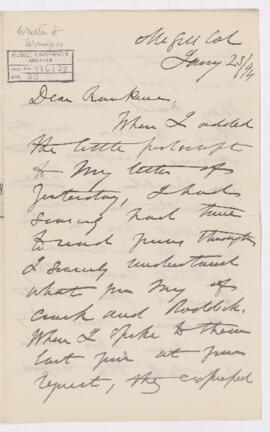 Written to
Winnipeg
McGILL UNIVERSITY
ARCHIVES
ACC. NO.
REF. 23
McGill Col
Jany 23/94
Dear Rankine,
When I added
the little postscript
to my letter of
yesterday, I had
scarcely had time
to read yours through
I scarcely understood
what you say of
and Roddick.
When I spoke to them
last year at your
request, they expressed